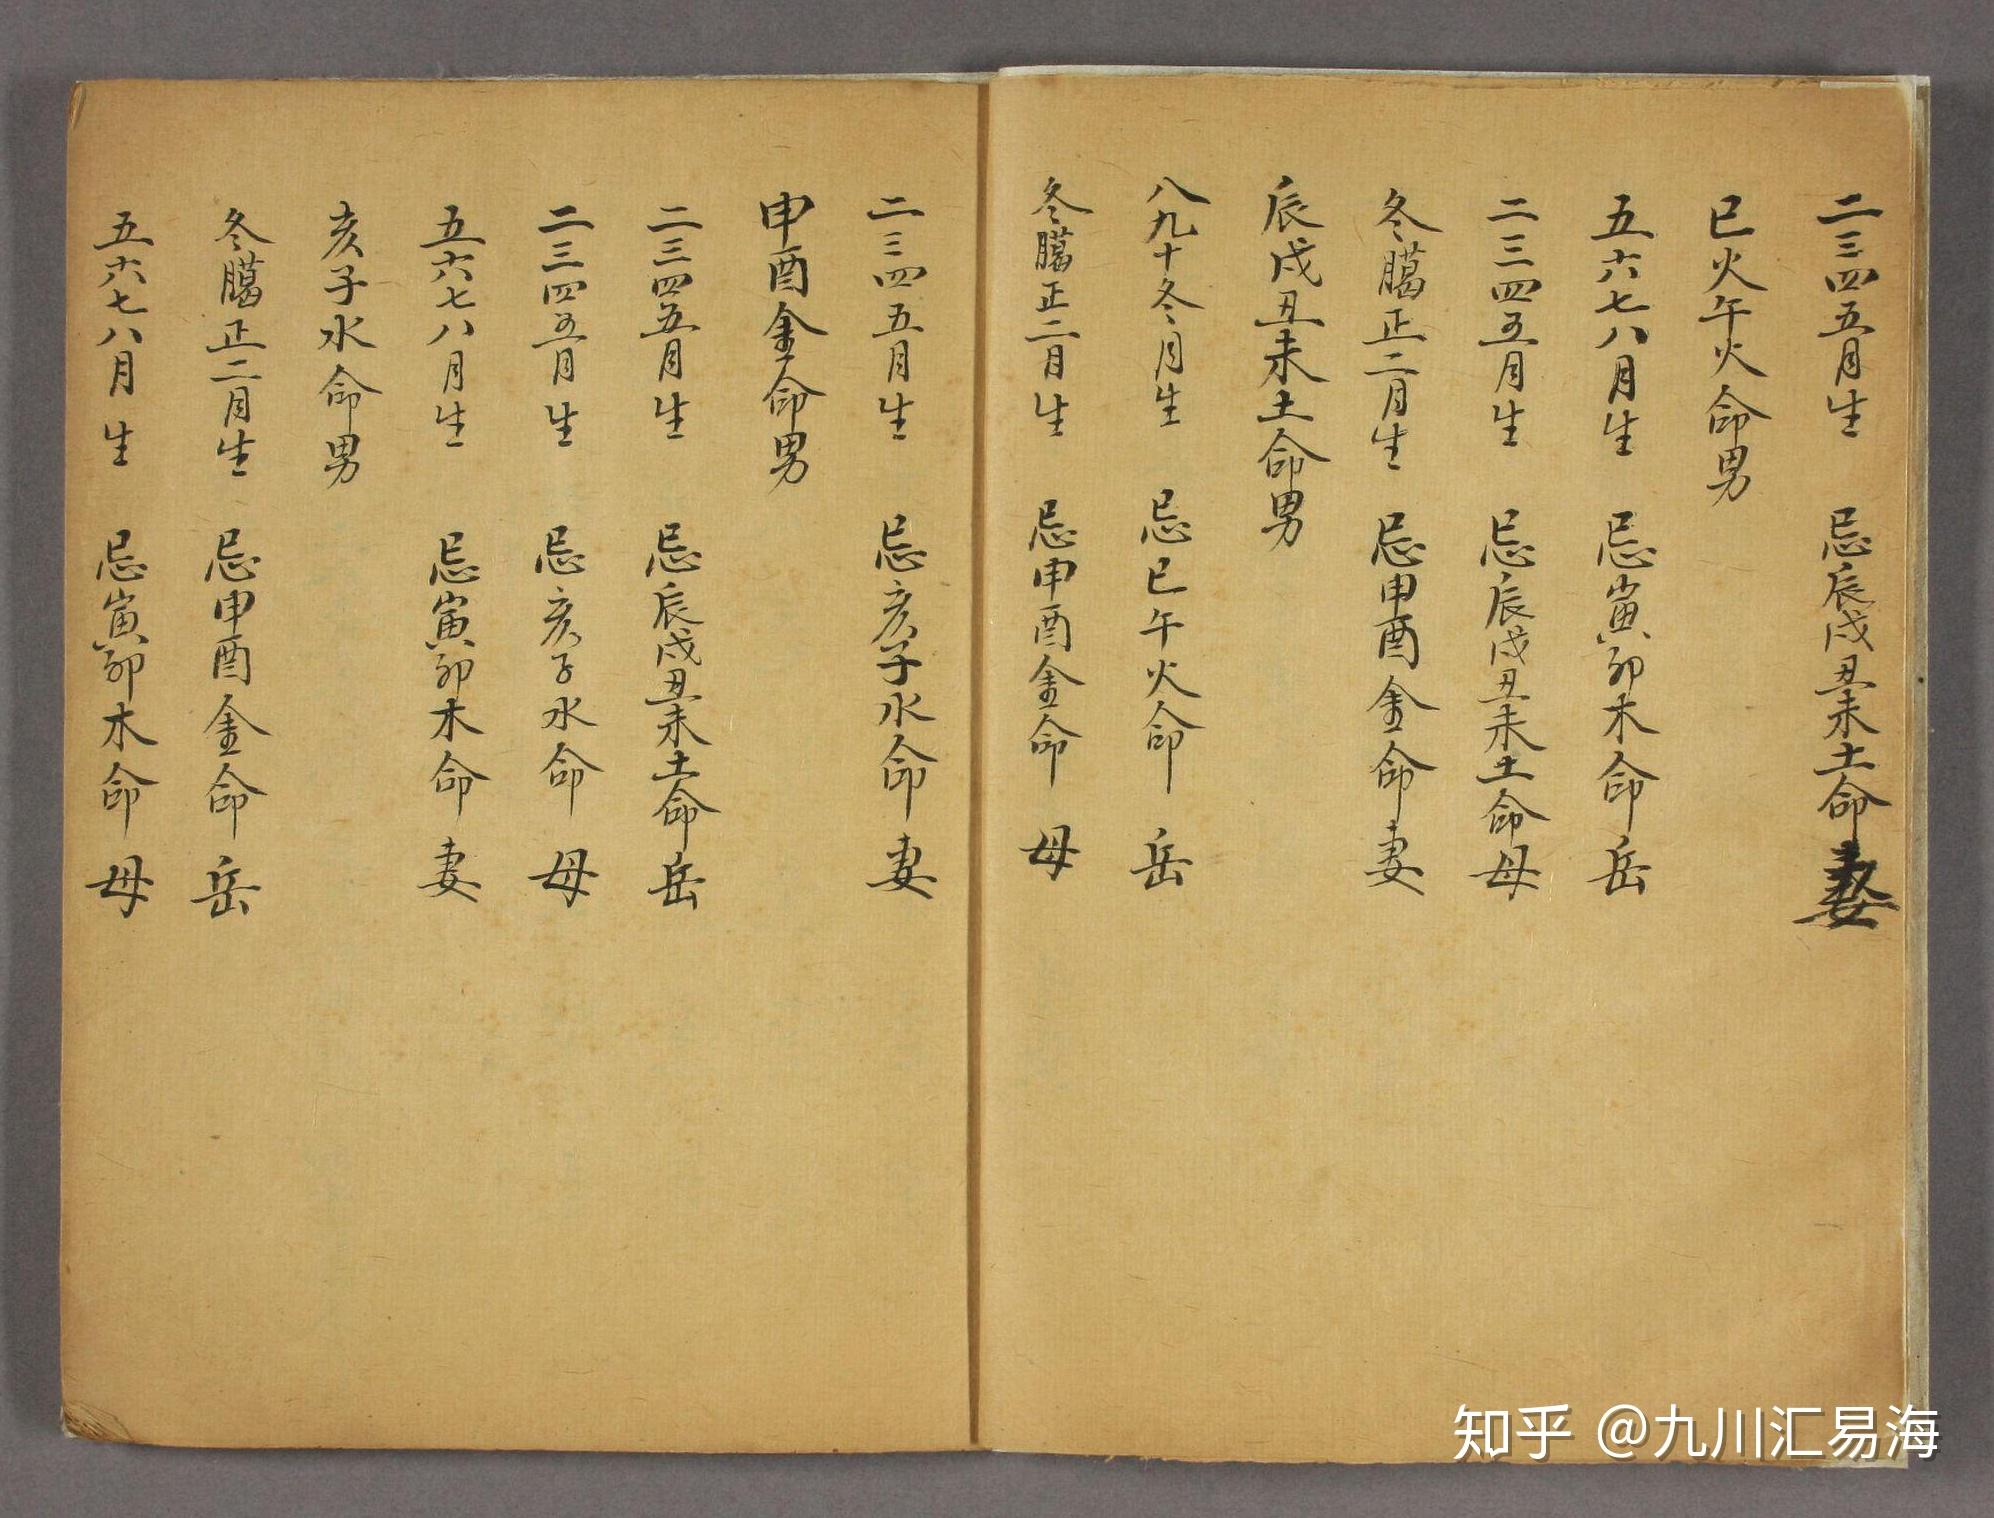 二三四五月生　忌辰戌丑未土命妻
巳火午火命男
五六七八月生　忌寅卯木命岳
二三四五月生　忌辰戌丑未土命母
冬臈正二月生　忌申酉金命妻
辰戌丑未土命男
八九十冬月生　忌巳午火命　岳
冬臈正二月生　忌申酉金命　母
二三四五月生　忌亥子水命妻
申酉金命男
二三四五月生　忌辰戌丑未土命岳
二三四五月生　忌亥子水命　母
五六七八月生　忌寅卯木命　妻
亥子水命男
冬臈正二月生　忌申酉金命　岳
五六七八月生　忌寅卯木命　母
知乎 @九川汇易海